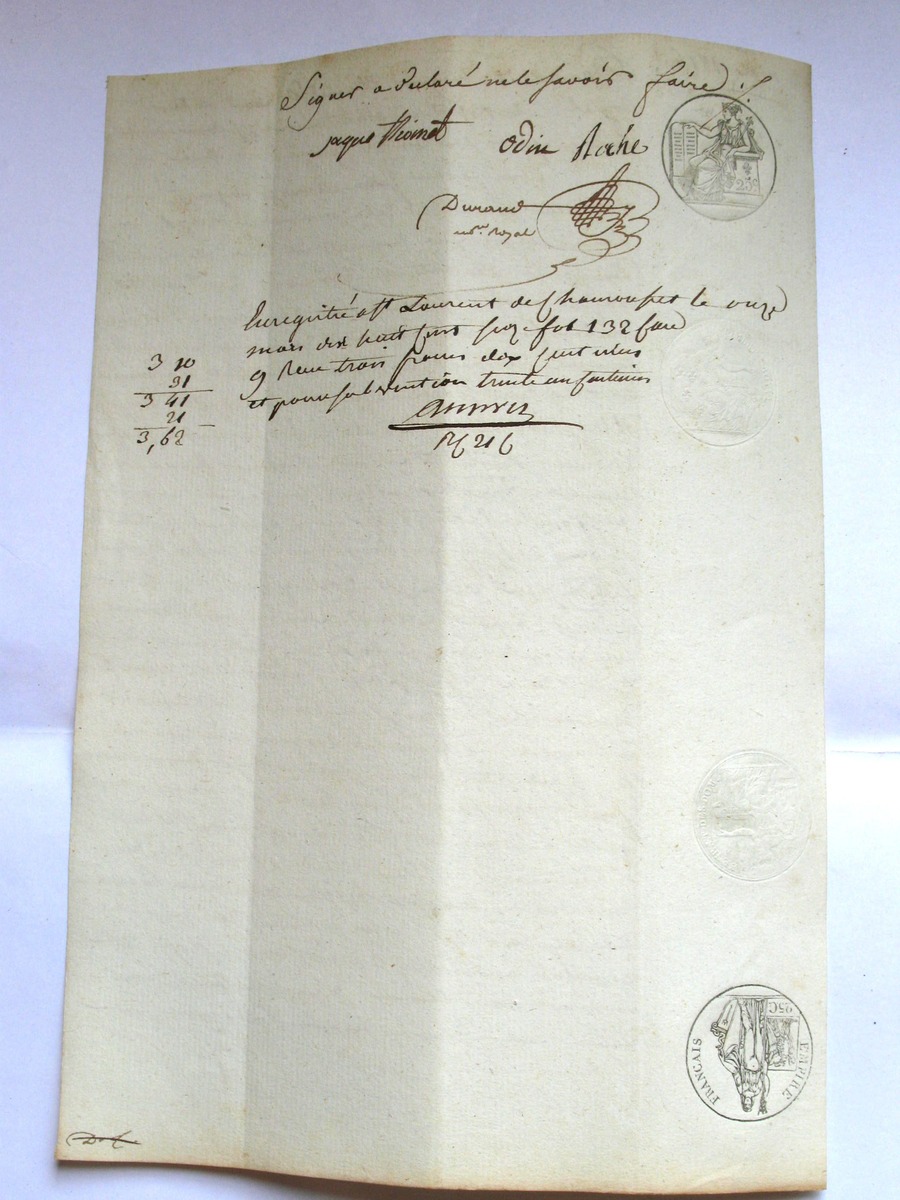 Signer a declaré ne le savoir faire ./.
jaque thomet odin Roche
Durand
not.re Royal
Enregistré a st Laurent de Chamousset le onze
mars dix huit cent seize fol 132 case
9 Recu trois francs dix centimes
et pour subvention trente un centimes
3 10
31
3 41
21
3,62
21 c
25c
25C
EMPIRE
FRANCAIS